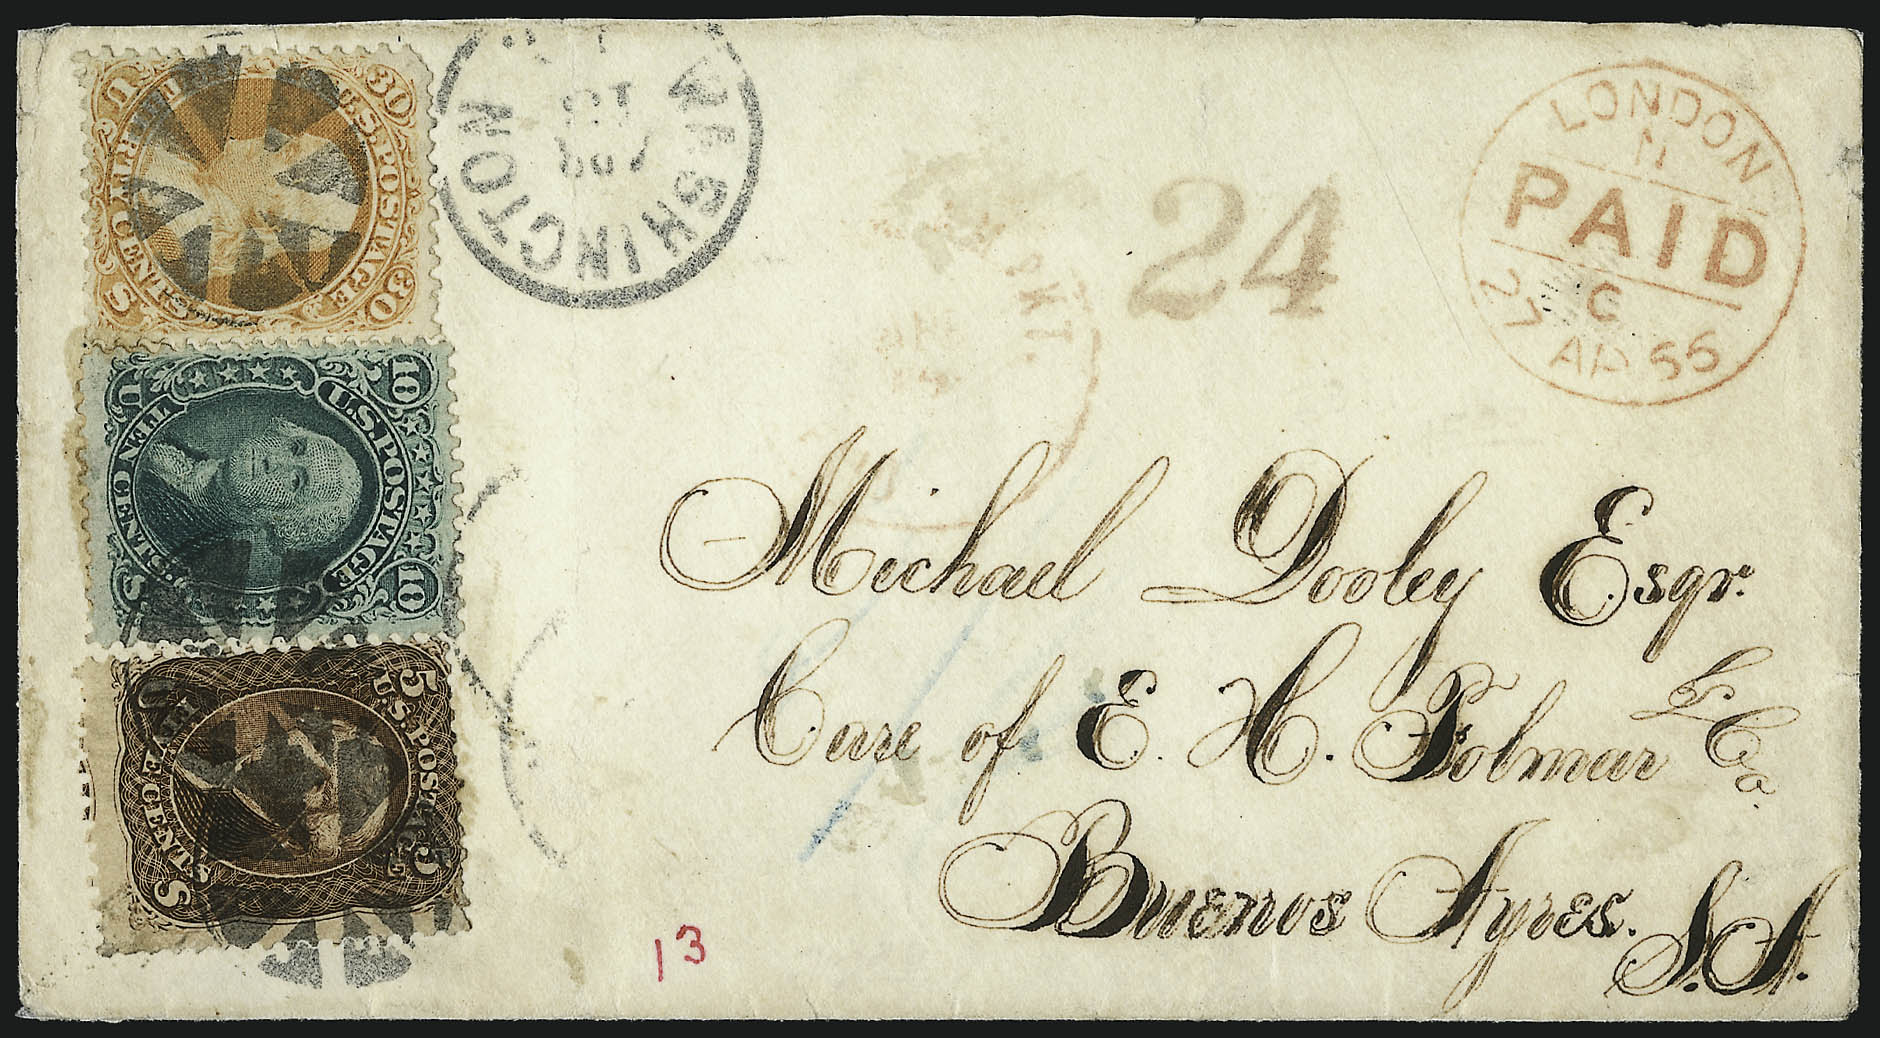 U.S. POSTAGE
30 30
THIRTY CENTS
U S
WASHINGTON
24
LONDON
PAID
C
27 AP 66
U.S. POSTAGE
10 10
TEN CENTS
U S
5 5
U.S. POSTAGE
FIVE CENTS
U S
Michael Dooley Esqr.
Care of E. H. Folmar & Co.
Buenos Ayres. S.A.
13